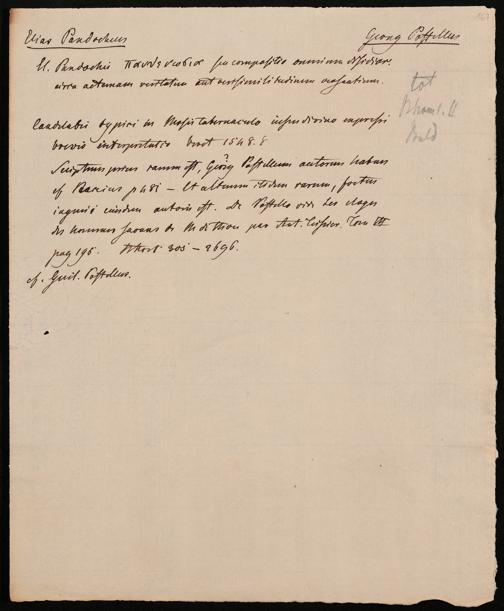 167
Elias Pandochaeus Georg Postellus
El. Pandochaei πανθενωσια seu compositio omnium dissidiorum
circa aeternam veritatem aut verisimilitudinem versantium.
tot
Candelabri typici in Mosis tabernaculo jussu divino expressi
brevis interpretatio Venet 1548. 8
Scriptum prius rarum est, Georg Postellum autorem habens
cf p 481 – Et alterum itidem rarum, foetus
ingenii eiusdem autoris est. De Postello vide Les eloges
des hommes savans de M de Thou par Ant. Teissier. Tom III
pag 196. 305 – 2696.
cf. Guil. Postellus.